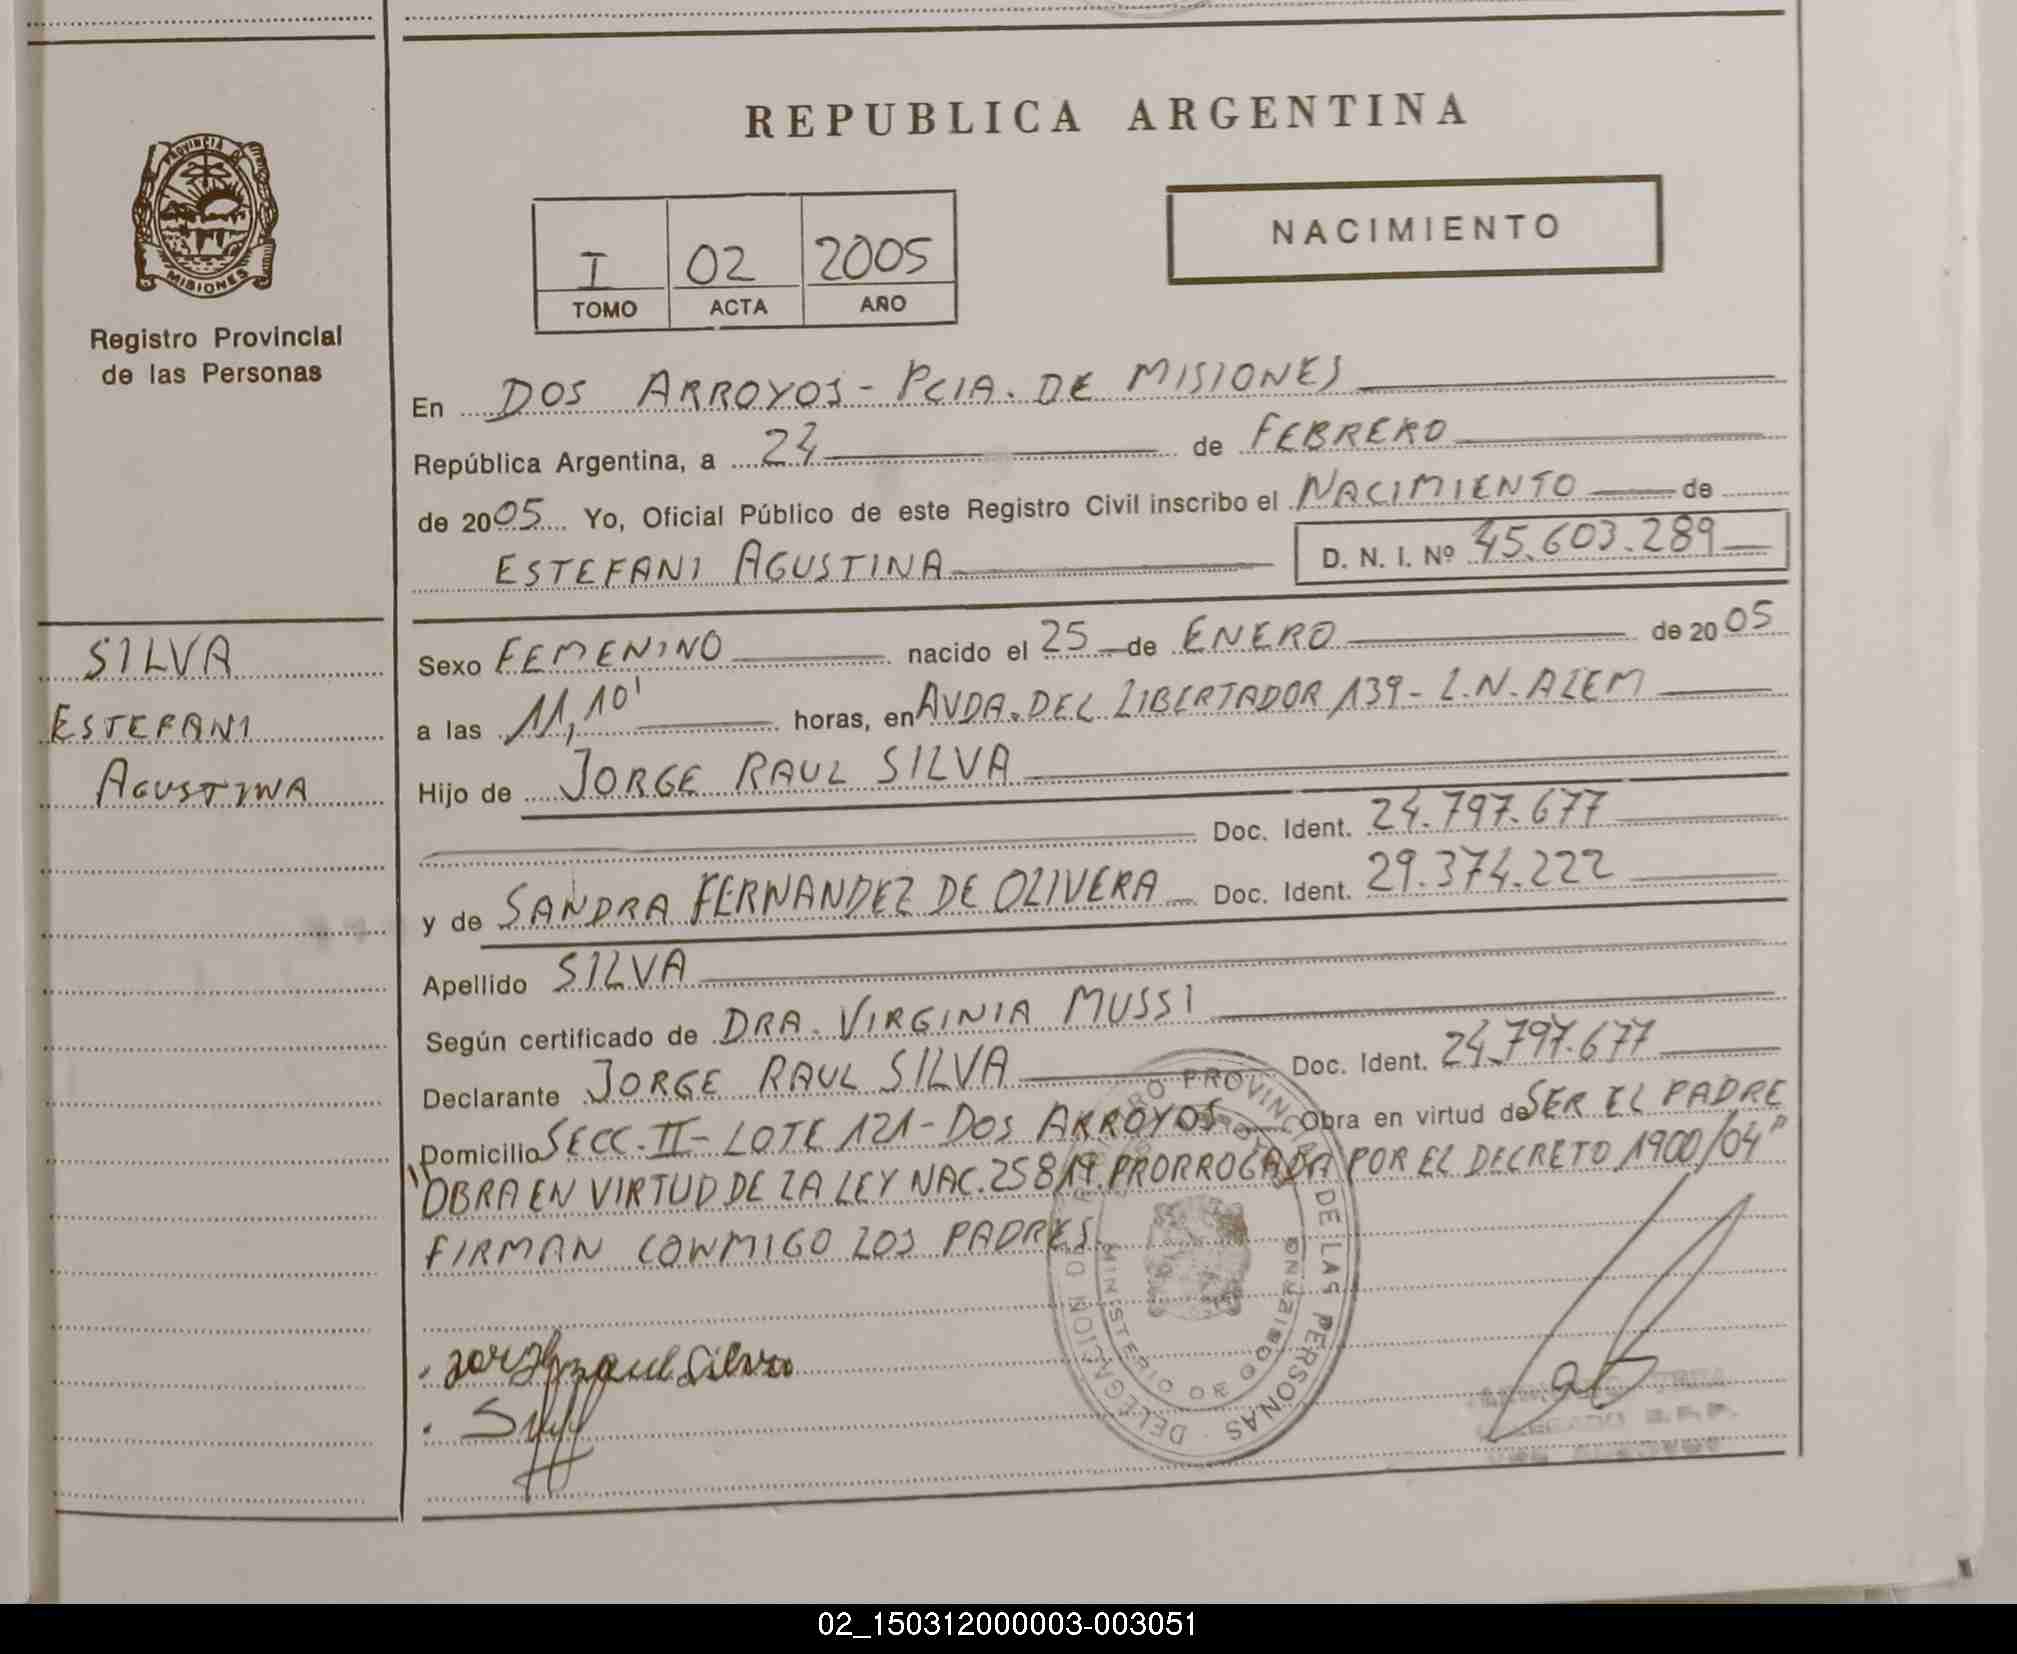 REPUBLICA ARGENTINA
PROVINCIA DE
MISIONES
Registro Provincial
de las Personas
NACIMIENTO
I 02 2005
TOMO ACTA AÑO
En DOS ARROYOS - PCIA. DE MISIONES
República Argentina, a 24 de FEBRERO
de 2005 Yo, Oficial Público de este Registro Civil inscribo el NACIMIENTO de
ESTEFANI AGUSTINA D. N. I. Nº 45.603.289
SILVA
ESTEFANI
AGUSTINA
Sexo FEMENINO nacido el 25 de ENERO de 2005
a las 11,10' horas, en AVDA. DEL LIBERTADOR 139 - L.N. ALEM
Hijo de JORGE RAUL SILVA
Doc. Ident. 24.797.677
y de SANDRA FERNANDEZ DE OLIVERA Doc. Ident. 29.374.222
Apellido SILVA
Según certificado de DRA. VIRGINIA MUSSI
Declarante JORGE RAUL SILVA Doc. Ident. 24.797.677
Domicilio SECC. II - LOTE 121 - DOS ARROYOS Obra en virtud de SER EL PADRE
"OBRA EN VIRTUD DE LA LEY NAC. 25819 PRORROGADA POR EL DECRETO 1900/04"
FIRMAN CONMIGO LOS PADRES.
REGISTRO PROVINCIAL DE LAS PERSONAS
MINISTERIO DE GOBIERNO
Jorge Raul Silva
02_150312000003-003051